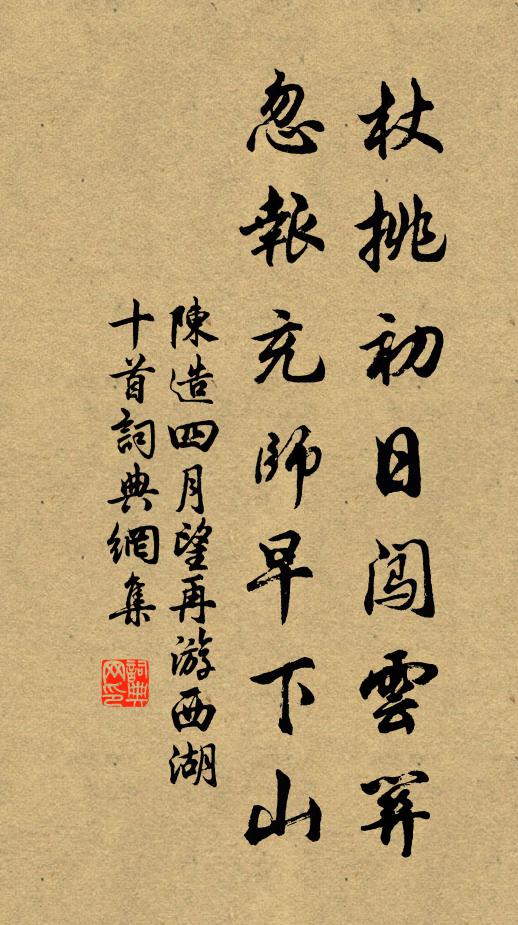 杖挑初日闯雲關
忽報充師早下山
陳造四月望再游西湖
十首詞典網集
詞典网印